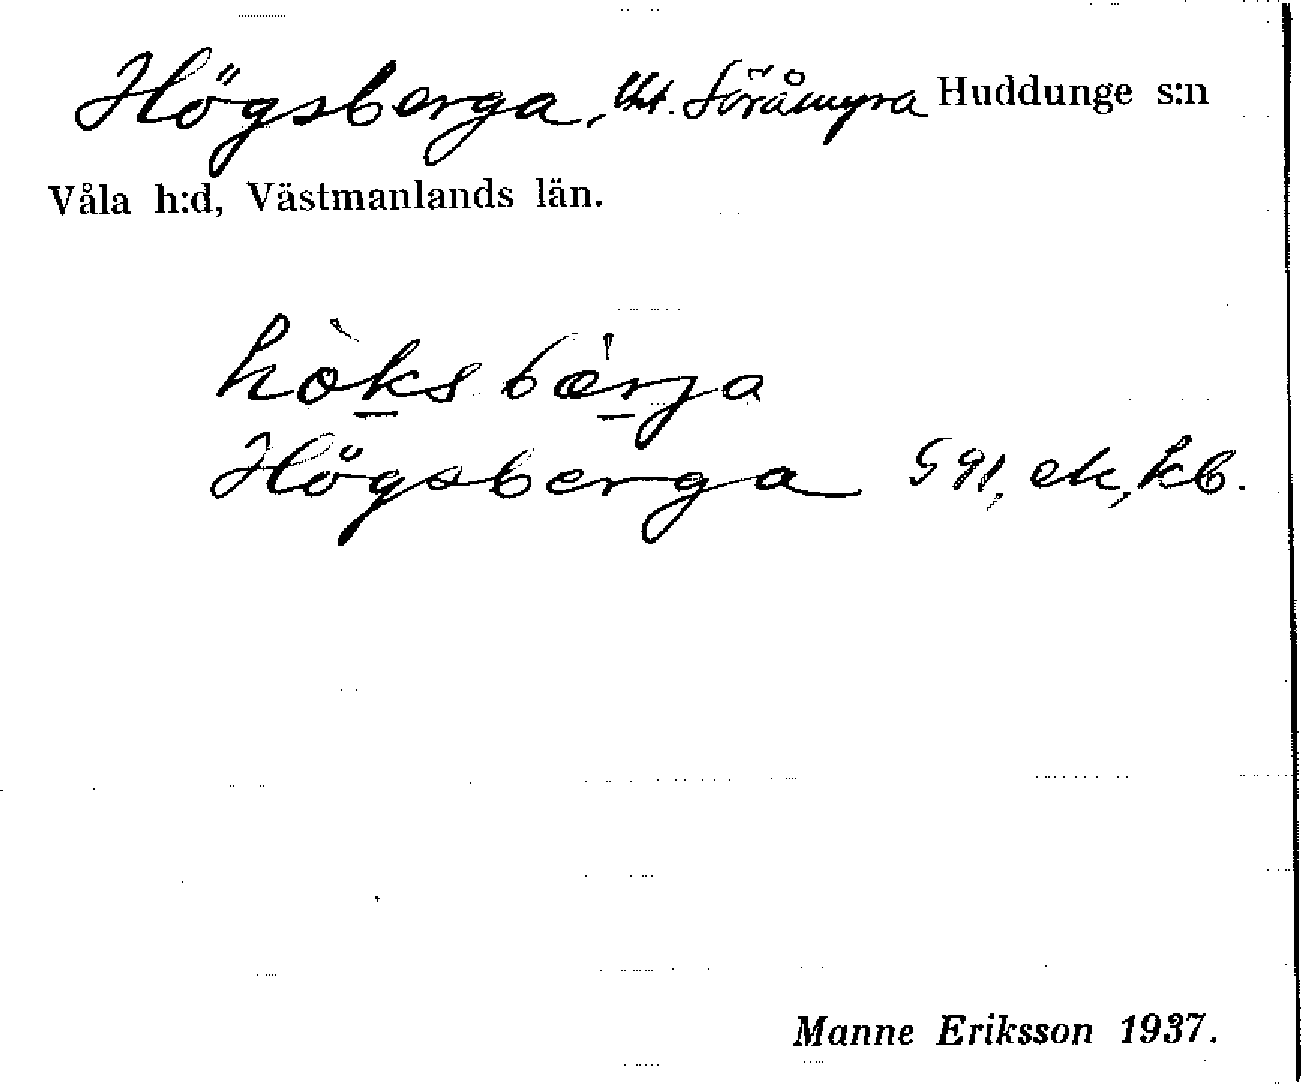 Högsberga, tht. Söråmyra Huddunge s:n
Våla h:d, Västmanlands län.
hòksbærja
Högsberga GGI, ek, kb.
Manne Eriksson 1937.